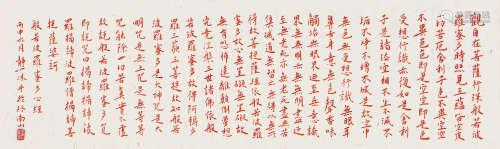 觀自在菩薩行深般若波
羅蜜多時照見五蘊皆空度
一切苦厄舍利子色不異空空
不異色色即是空空即是色
受想行識亦復如是舍利
子是諸法空相不生不滅不
垢不淨不增不減是故空中
無色無受想行識無眼耳
鼻舌身意無色聲香味
觸法無眼界乃至無意識
界無無明亦無無明盡乃
至無老死亦無老死盡無苦
集滅道無智亦無得以無所
得故菩提薩埵依般若波羅
蜜多故心無罣礙無罣礙故
無有恐怖遠離顛倒夢想
究竟涅槃三世諸佛依般
若波羅蜜多故得阿耨多
羅三藐三菩提故知般若
波羅蜜多是大神咒是大
明咒是無上咒是無等等
咒能除一切苦真實不虛
故說般若波羅蜜多咒
即說咒曰揭諦揭諦波
羅揭諦波羅僧揭諦菩
提薩婆訶
般若波羅蜜多心經
丙申六月靜於南山